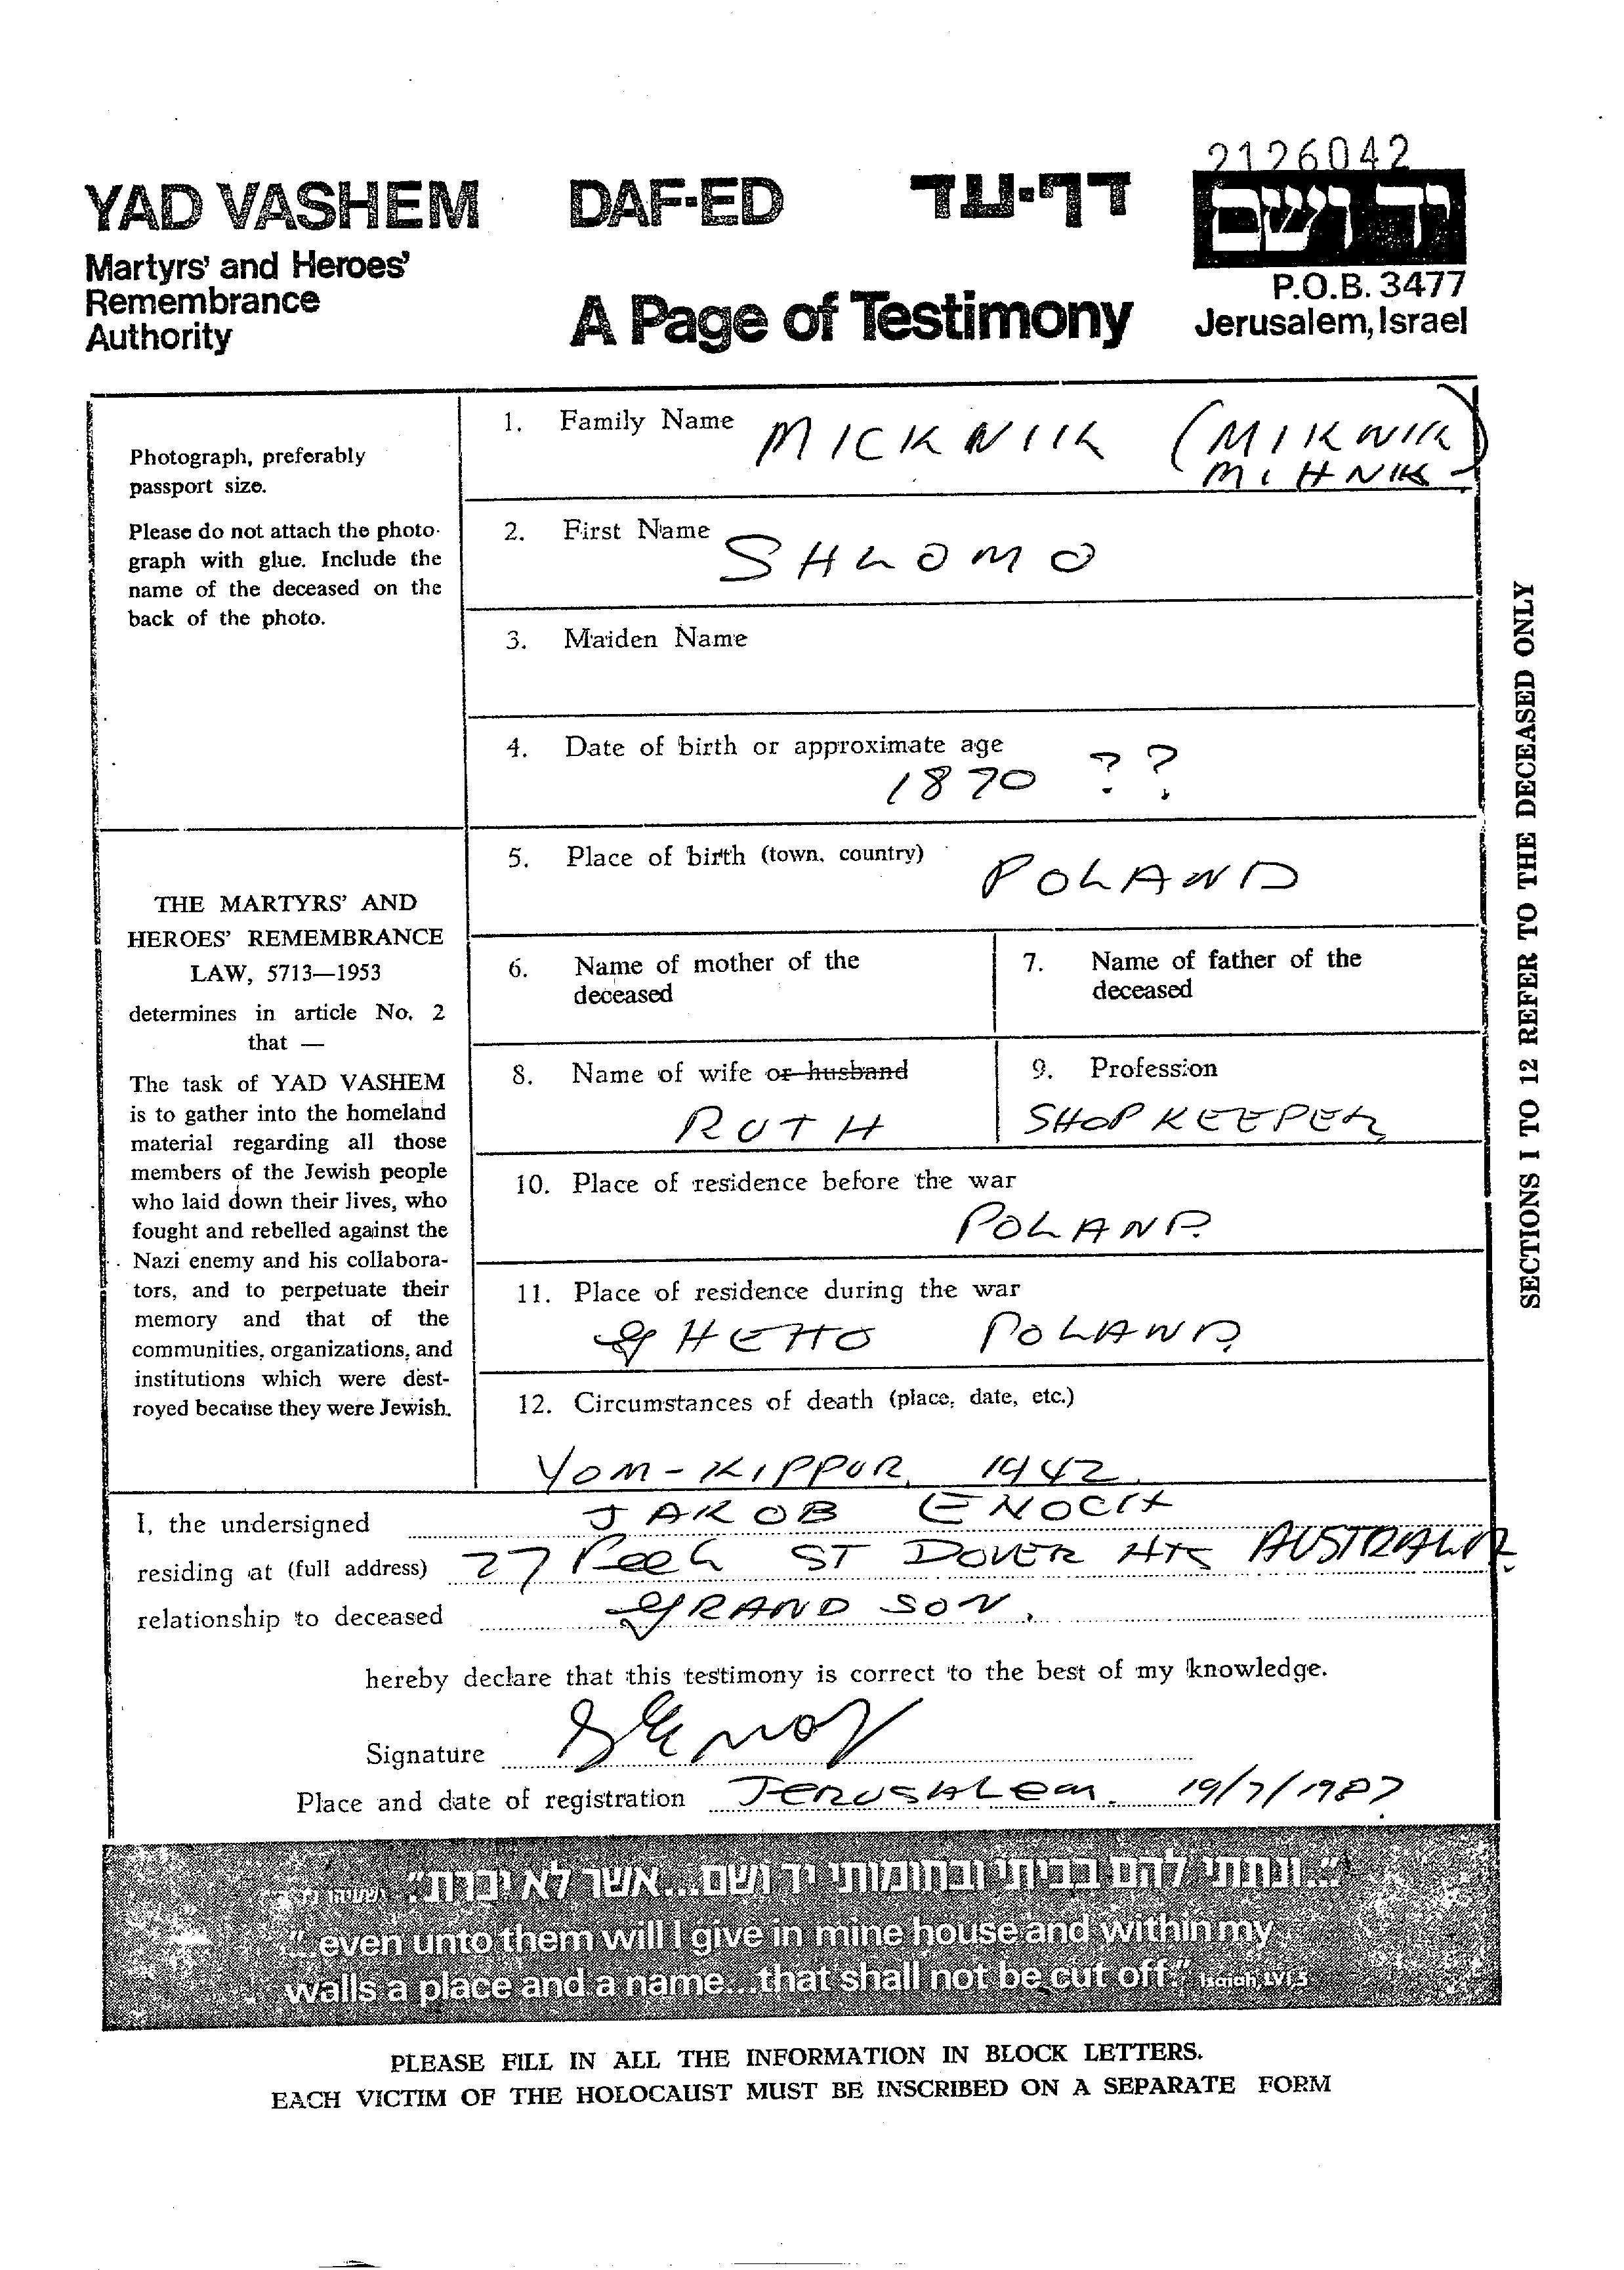 2126042
YAD VASHEM DAF-ED דף-עד יד ושם
Martyrs' and Heroes'
Remembrance
Authority
A Page of Testimony
P.O.B. 3477
Jerusalem, Israel
Photograph, preferably
passport size.
Please do not attach the photo-
graph with glue. Include the
name of the deceased on the
back of the photo.
THE MARTYRS' AND
HEROES' REMEMBRANCE
LAW, 5713—1953
determines in article No. 2
that —
The task of YAD VASHEM
is to gather into the homeland
material regarding all those
members of the Jewish people
who laid down their lives, who
fought and rebelled against the
Nazi enemy and his collabora-
tors, and to perpetuate their
memory and that of the
communities, organizations, and
institutions which were dest-
royed because they were Jewish.
1. Family Name MICKNIK (MIKNIK
MIHNIK)
2. First Name SHLOMO
3. Maiden Name
4. Date of birth or approximate age
1870 ??
5. Place of birth (town, country) POLAND
6. Name of mother of the
deceased
7. Name of father of the
deceased
8. Name of wife or husband
RUTH
9. Profession
SHOPKEEPER
10. Place of residence before the war
POLAND
11. Place of residence during the war
GHETTO POLAND
12. Circumstances of death (place, date, etc.)
YOM-KIPPUR, 1942
SECTIONS 1 TO 12 REFER TO THE DECEASED ONLY
I, the undersigned JAKOB ENOCH
residing at (full address) 27 Peel ST DOVER HTS AUSTRALIA
relationship to deceased GRAND SON.
hereby declare that this testimony is correct to the best of my knowledge.
Signature
Place and date of registration JERUSALEM. 19/7/1987
"...ונתתי להם בביתי ובחומותי יד ושם...אשר לא יכרת". ישעיהו
"...even unto them will I give in mine house and within my
walls a place and a name...that shall not be cut off." Isaiah, LVI,5
PLEASE FILL IN ALL THE INFORMATION IN BLOCK LETTERS.
EACH VICTIM OF THE HOLOCAUST MUST BE INSCRIBED ON A SEPARATE FORM